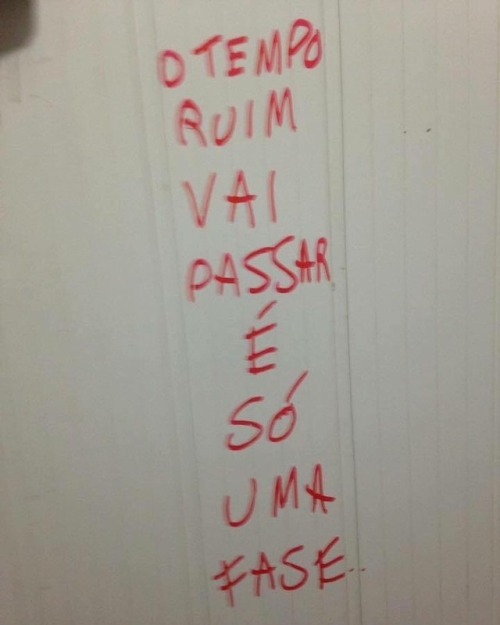 O TEMPO
RUIM
VAI
PASSAR
É
SÓ
UMA
FASE..